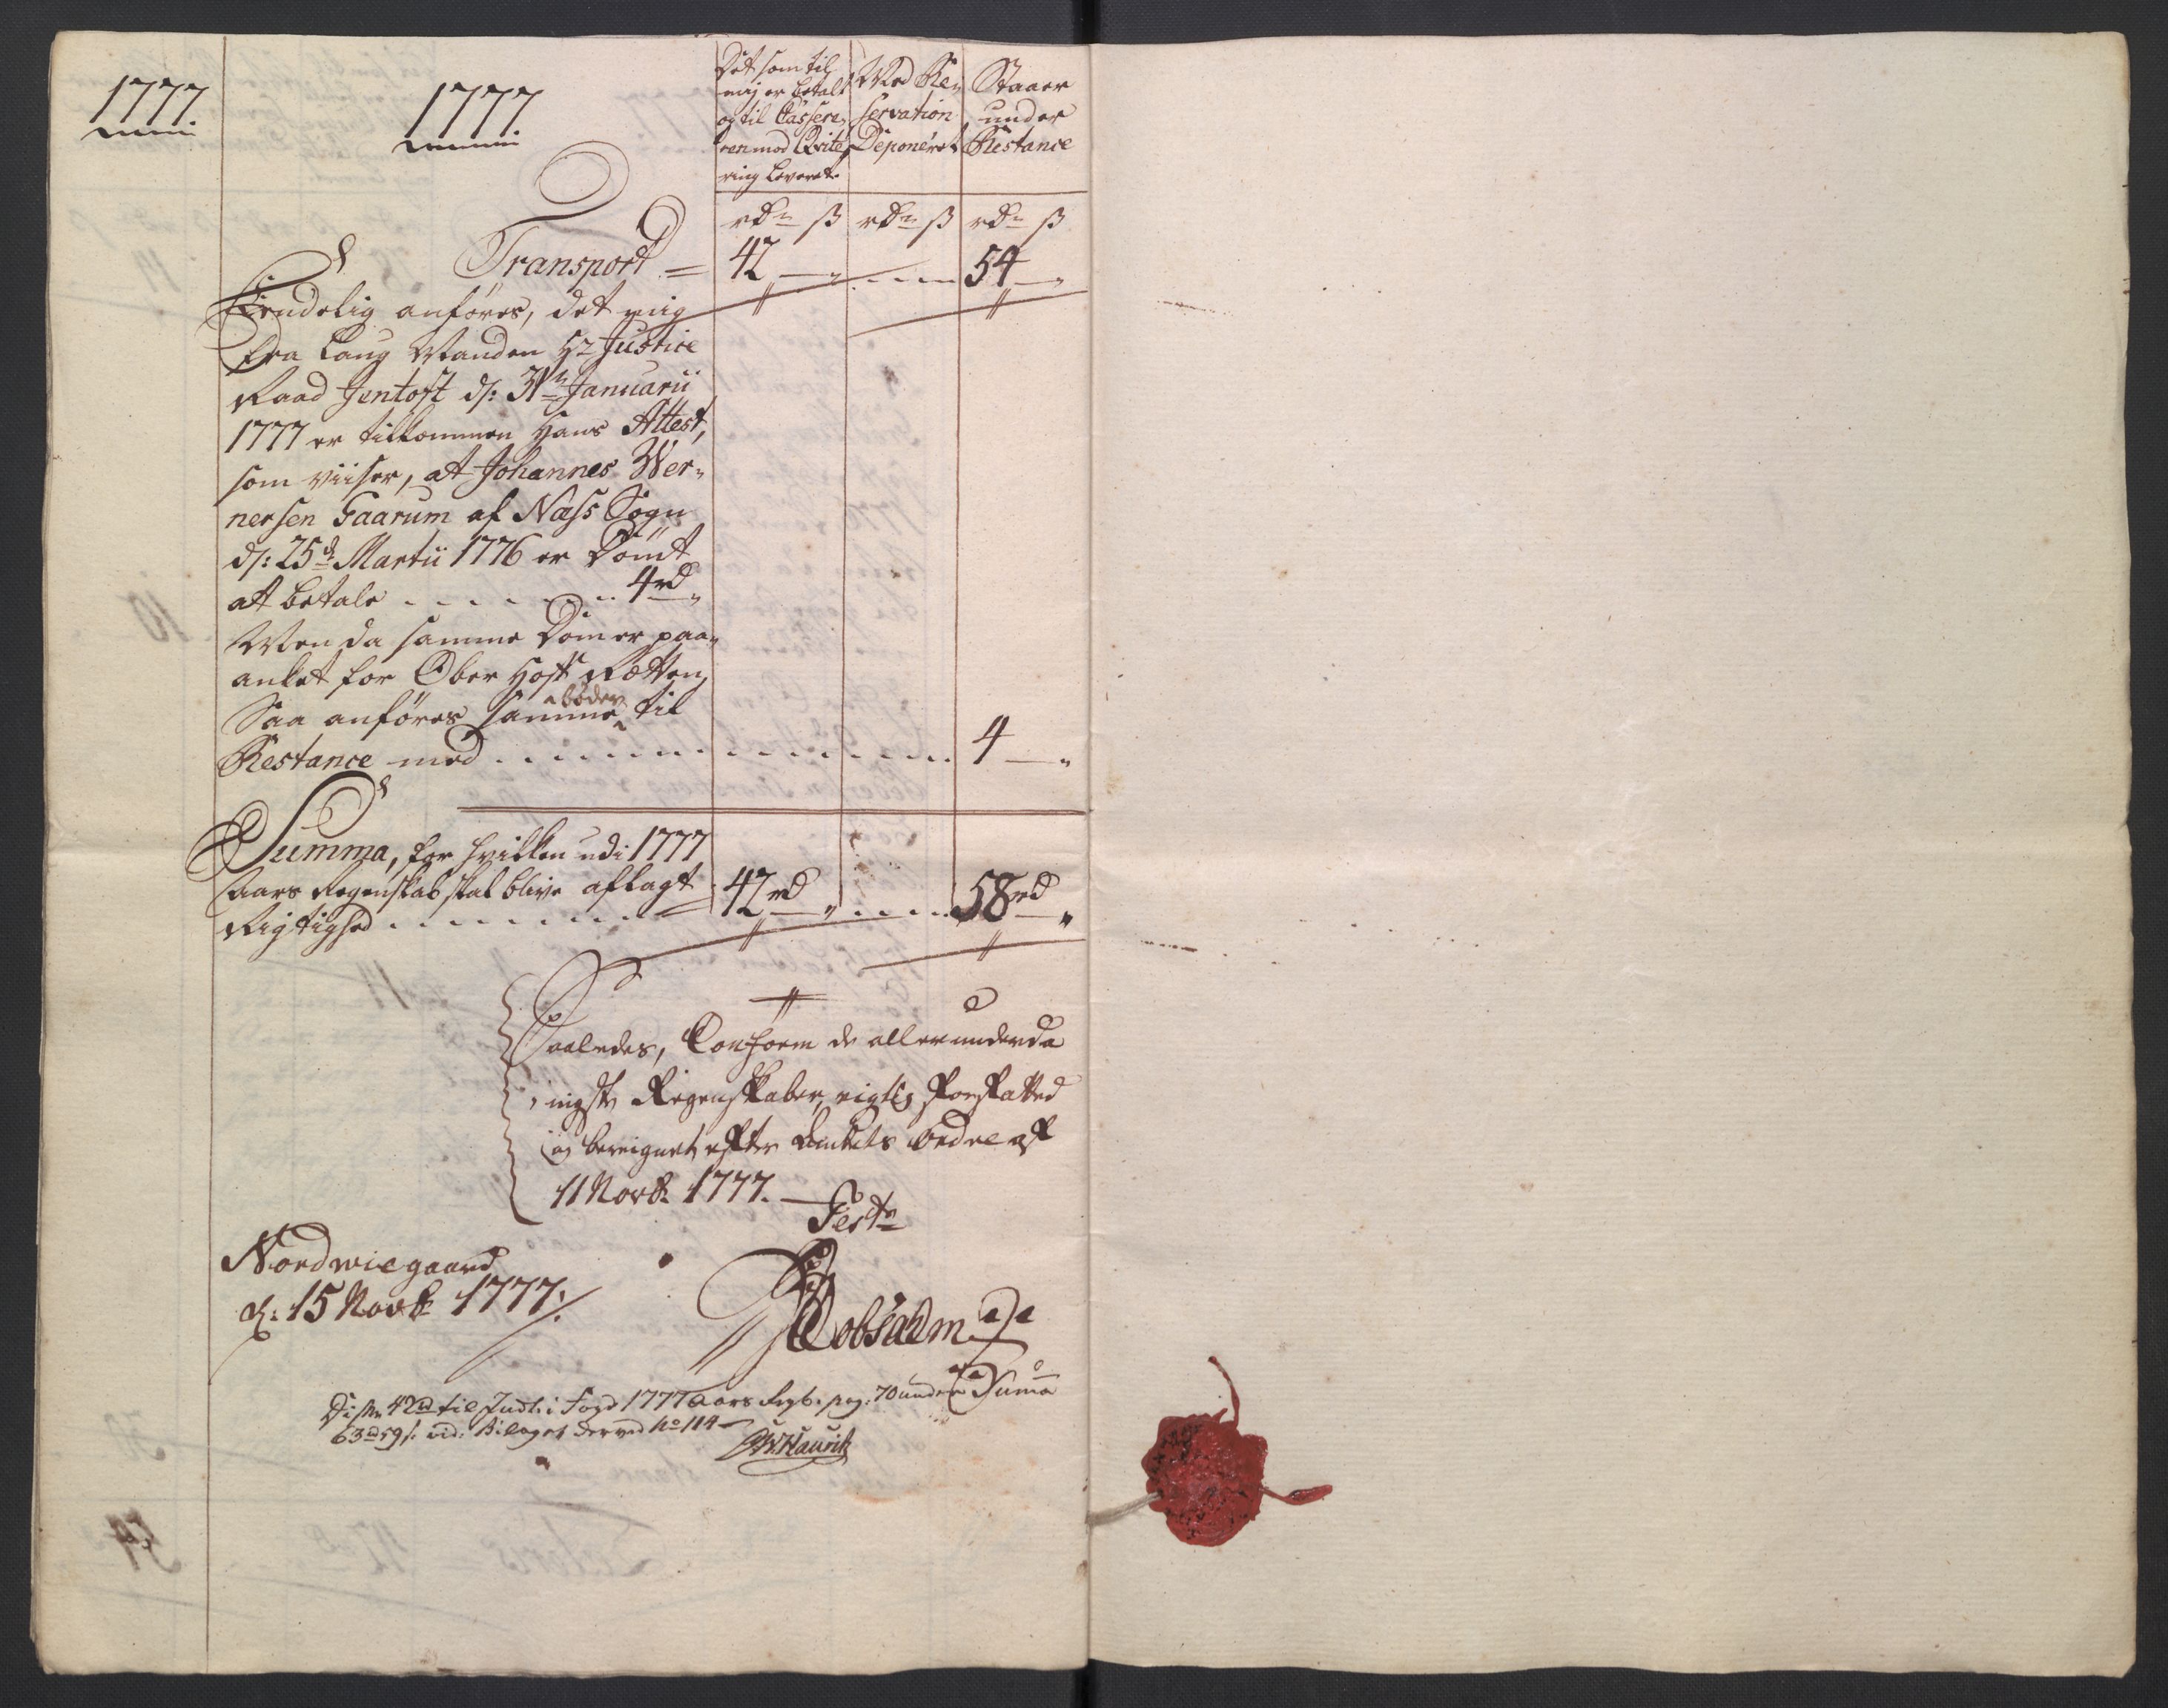 1777.
1777.
Det som til
mig er betalt
og til Cassere,,
ren mod Qvite,,
ring leveret.
Med Re,,
servation
Deponeret
Staaer
under
Restance
rdr ß rdr ß rdr ß
Transport = 42 — „ 54 — „
Endelig anföres, det mig
fra Laug Manden Hr Justice
Raad Jentoft d: 31te Januarii
1777 er tilkommen Hans Attest,
som viiser, at Johannes Wer,,
nersen Gaarum af Næss Sogn
d: 25de Martii 1776 er Dömt
at betale . . . . . . . 4 rd „
Men da samme Dom er paa,,
anket for Ober Hoff Retten,
böder
Saa anföres samme til
Restance med . . . . . . . . . . . . 4 — „
Summa, for hvilken udi 1777
Aars Regenskab skal blive aflagt
Rigtighed . . . . . . . = 42 rd — „ . . . . . 58 rd — „
Saaledes, Conform de allerunderda
nigste Regenskaber, rigtig Forfatted
og beregnet efter ordre af
11 Novbr 1777. —
Test
Nordwiegaard
d: 15 Novbr 1777.
Robsahm
Disse 42 rd til Indt. i Fogd 1777 Aars Regb. pag: 70 under Suma
63 rd 59 s. vid: Bilaget derved No 114 —
Hauritz